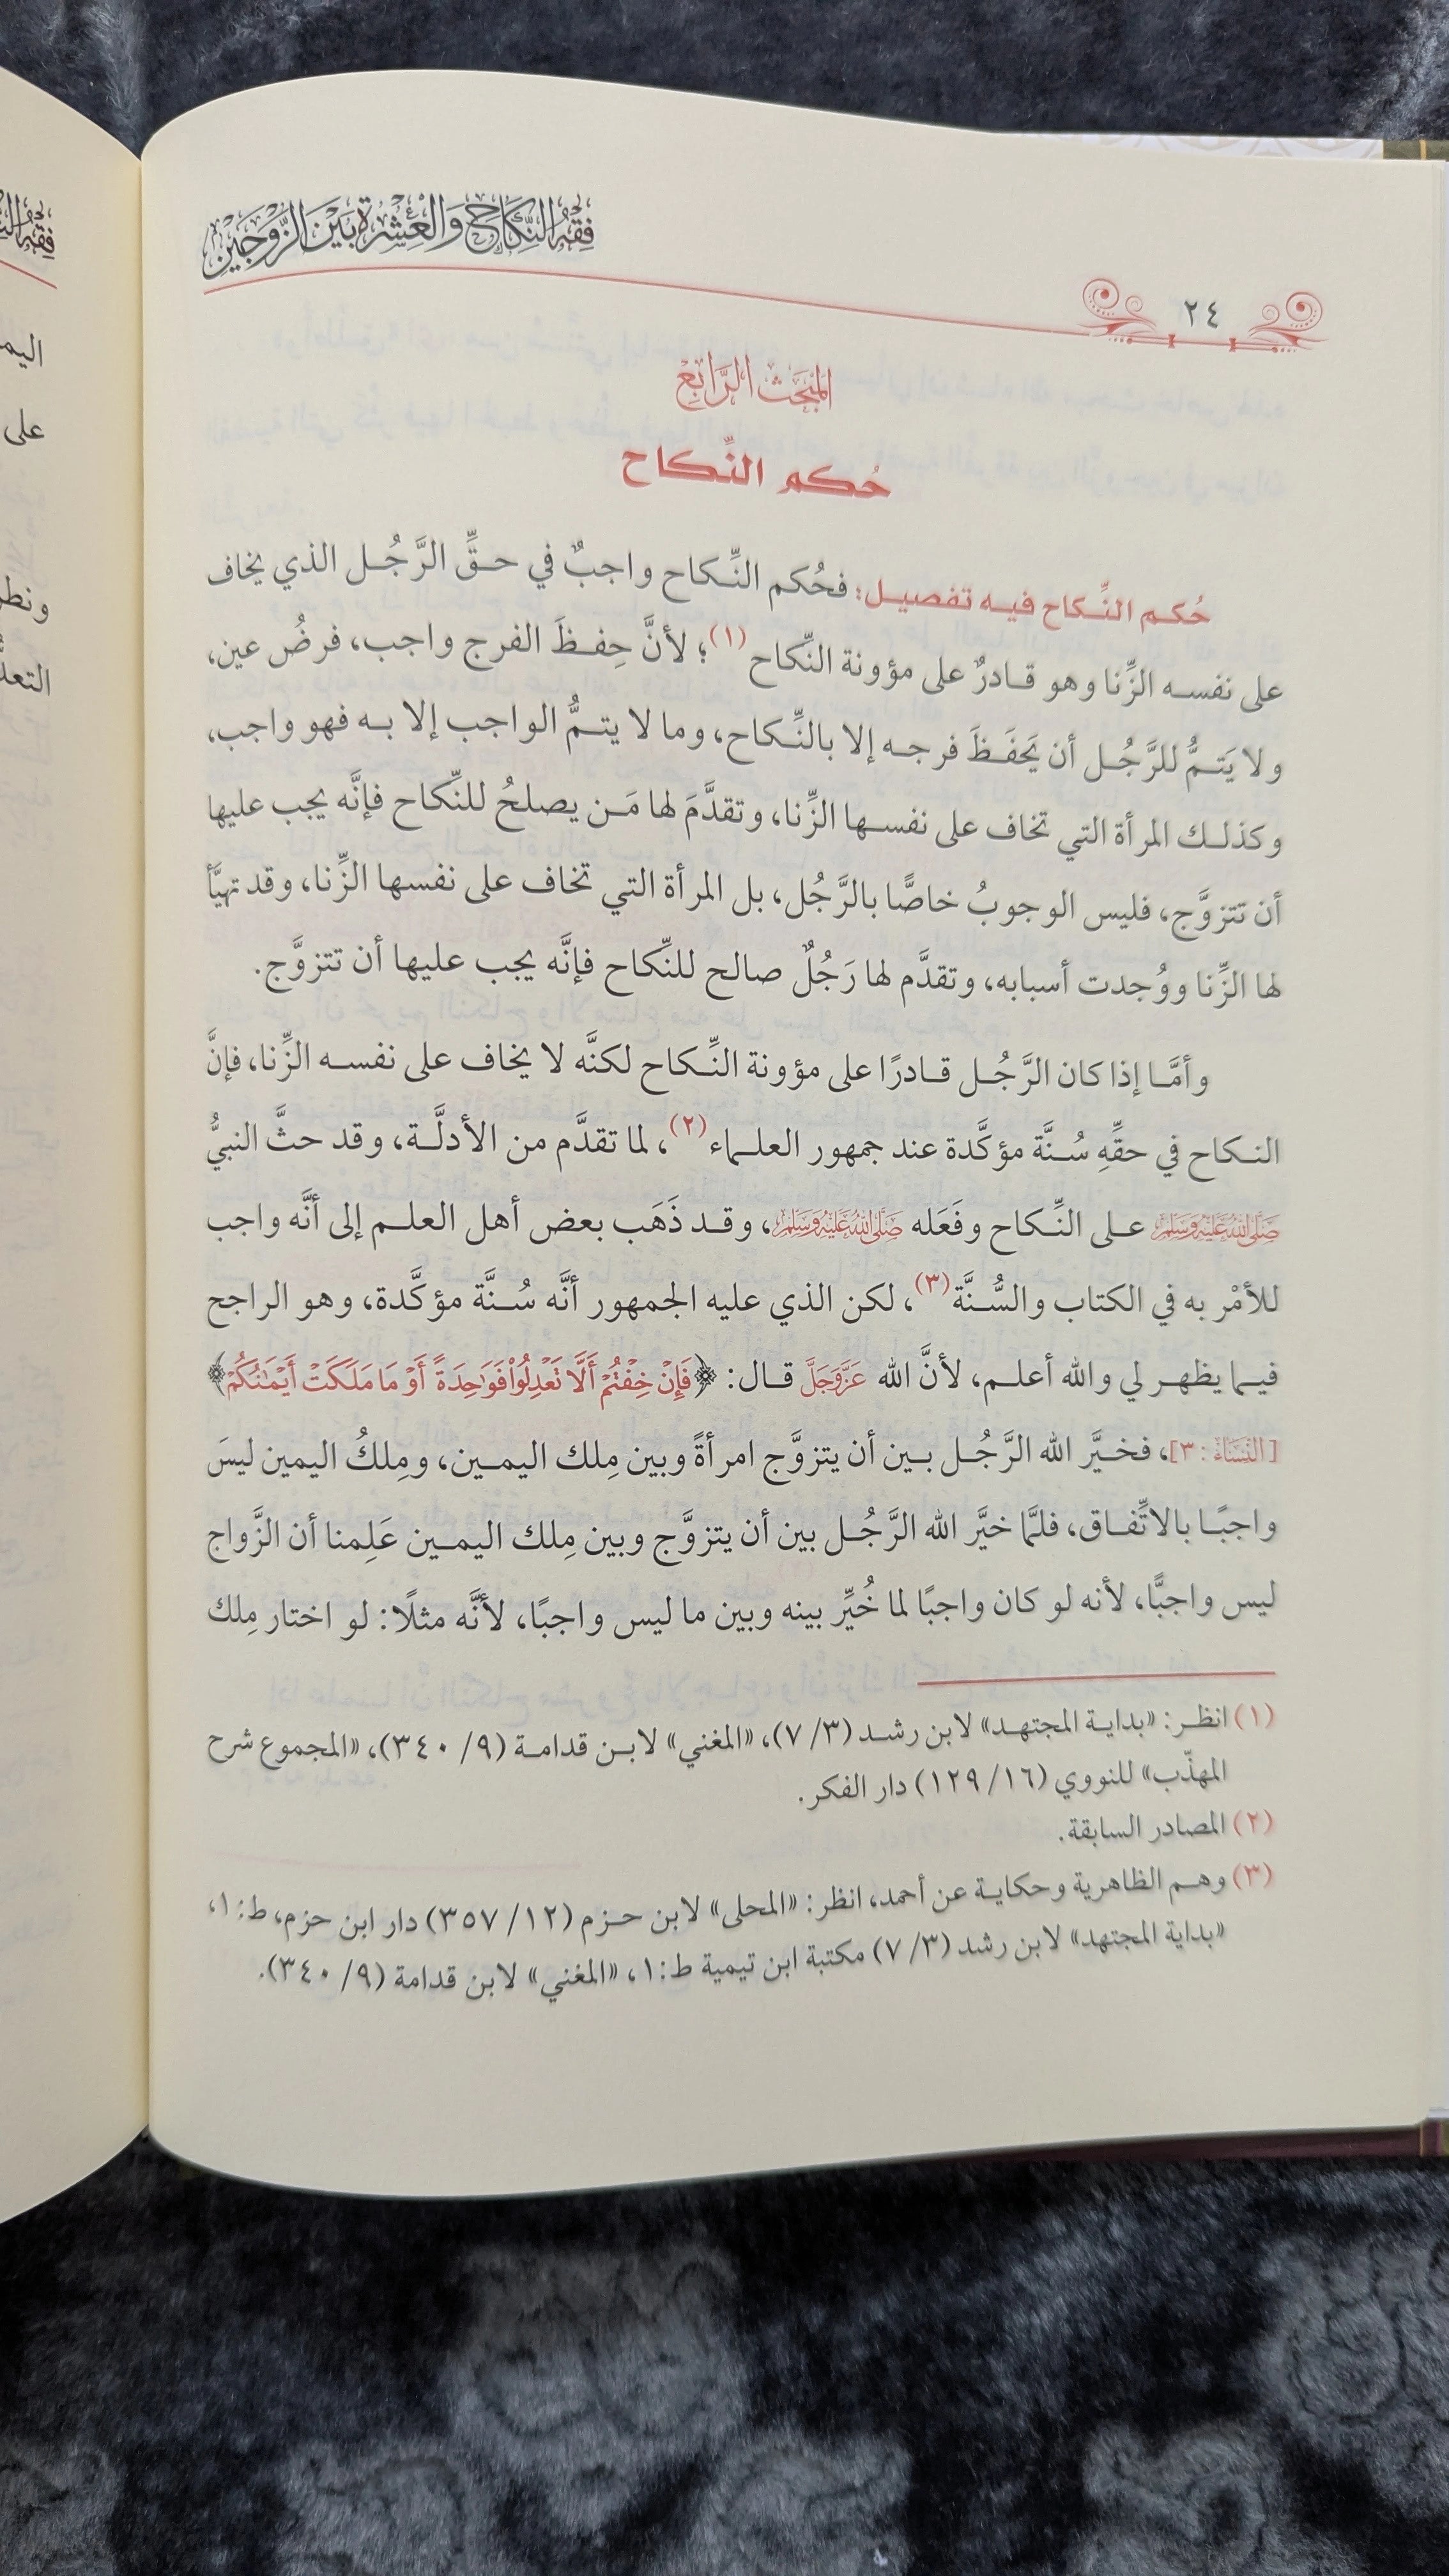 فِقْهُ النِّكَاحِ وَالْعِشْرَةِ بَيْنَ الزَّوْجَيْنِ
٢٤
المَبْحَثُ الرَّابِعُ
حُكم النِّكاح
حُكم النِّكاح فيه تفصيل: فحُكم النِّكاح واجبٌ في حقِّ الرَّجُل الذي يخاف
على نفسه الزِّنا وهو قادرٌ على مؤونة النِّكاح(١)؛ لأنَّ حِفظَ الفرج واجب، فرضُ عين،
ولا يَتمُّ للرَّجُل أن يَحفَظَ فرجه إلا بالنِّكاح، وما لا يتمُّ الواجب إلا به فهو واجب،
وكذلك المرأة التي تخاف على نفسها الزِّنا، وتقدَّمَ لها مَن يصلحُ للنِّكاح فإنَّه يجب عليها
أن تتزوَّج، فليس الوجوبُ خاصًّا بالرَّجُل، بل المرأة التي تخاف على نفسها الزِّنا، وقد تهيَّأ
لها الزِّنا ووُجدت أسبابه، وتقدَّم لها رَجُلٌ صالح للنِّكاح فإنَّه يجب عليها أن تتزوَّج.
وأمَّا إذا كان الرَّجُل قادرًا على مؤونة النِّكاح لكنَّه لا يخاف على نفسه الزِّنا، فإنَّ
النكاح في حقِّهِ سُنَّة مؤكَّدة عند جمهور العلماء(٢)، لما تقدَّم من الأدلَّة، وقد حثَّ النبيُّ
صَلَّى اللهُ عَلَيْهِ وَسَلَّمَ على النِّكاح وفَعَله صَلَّى اللهُ عَلَيْهِ وَسَلَّمَ، وقد ذَهَب بعض أهل العلم إلى أنَّه واجب
للأمْر به في الكتاب والسُّنَّة(٣)، لكن الذي عليه الجمهور أنَّه سُنَّة مؤكَّدة، وهو الراجح
فيما يظهر لي والله أعلم، لأنَّ الله عَزَّوَجَلَّ قال: ﴿فَإِنْ خِفْتُمْ أَلَّا تَعْدِلُوا۟ فَوَٰحِدَةً أَوْ مَا مَلَكَتْ أَيْمَٰنُكُمْ﴾
[النِّسَاء: ٣]، فخيَّر الله الرَّجُل بين أن يتزوَّج امرأةً وبين مِلك اليمين، ومِلكُ اليمين ليسَ
واجبًا بالاتِّفاق، فلمَّا خيَّر الله الرَّجُل بين أن يتزوَّج وبين مِلك اليمين عَلِمنا أن الزَّواج
ليس واجبًّا، لأنه لو كان واجبًا لما خُيِّر بينه وبين ما ليس واجبًا، لأنَّه مثلًا: لو اختار مِلك
(١) انظر: «بداية المجتهد» لابن رشد (٣/ ٧)، «المغني» لابن قدامة (٩/ ٣٤٠)، «المجموع شرح
المهذّب» للنووي (١٦/ ١٢٩) دار الفكر.
(٢) المصادر السابقة.
(٣) وهم الظاهرية وحكاية عن أحمد، انظر: «المحلى» لابن حزم (١٢/ ٣٥٧) دار ابن حزم، ط: ١،
«بداية المجتهد» لابن رشد (٣/ ٧) مكتبة ابن تيمية ط: ١، «المغني» لابن قدامة (٩/ ٣٤٠).
على